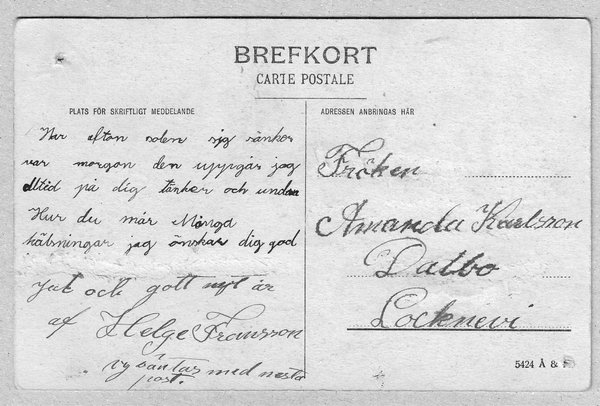 BREFKORT
CARTE POSTALE
PLATS FÖR SKRIFTLIGT MEDDELANDE
ADRESSEN ANBRINGAS HÄR
Var afton solen sig sänker
var morgon den uppgår jag
alltid på dig tänker och undan
Hur du mår Mångd
hälsningar jag önskar dig god
Jul och gott nytt år
af Helge Fransson
med nästa
post.
Fröken
Amanda Karlsson
Dalbo
Locknevi
5424 Å &